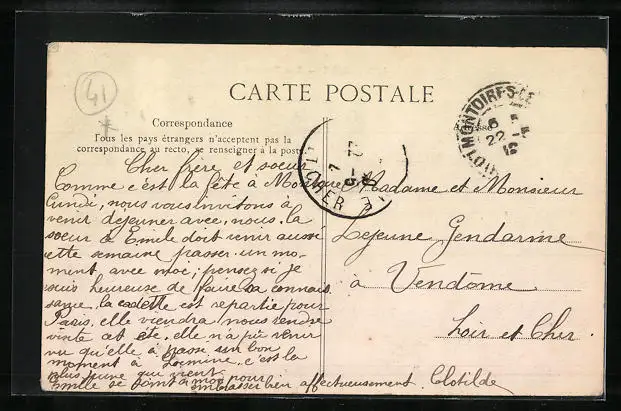 41
CARTE POSTALE
Correspondance
Tous les pays étrangers n'acceptent pas la
correspondance au recto, se renseigner à la poste.
Adresse
MONTOIRE-S-
22
CHER
Cher frère et soeur
Comme c'est la fête à
lundi, nous vous invitons à
venir déjeuner avec nous. la
soeur à Emile doit venir aussi
cette semaine passer un mo-
ment avec moi; pensez si je
suis heureuse de faire sa connais
sance. la cadette est repartie pour
Paris. elle viendra nous rendre
visite cet été. elle n'a pu venir
vu qu'elle a passé son bon
moment à . c'est la
plus jeune qui vient
Emile se joint à moi pour
embrasser bien affectueusement. Clotilde
Madame et Monsieur
Lejeune Gendarme
à Vendôme
Loir et Cher.